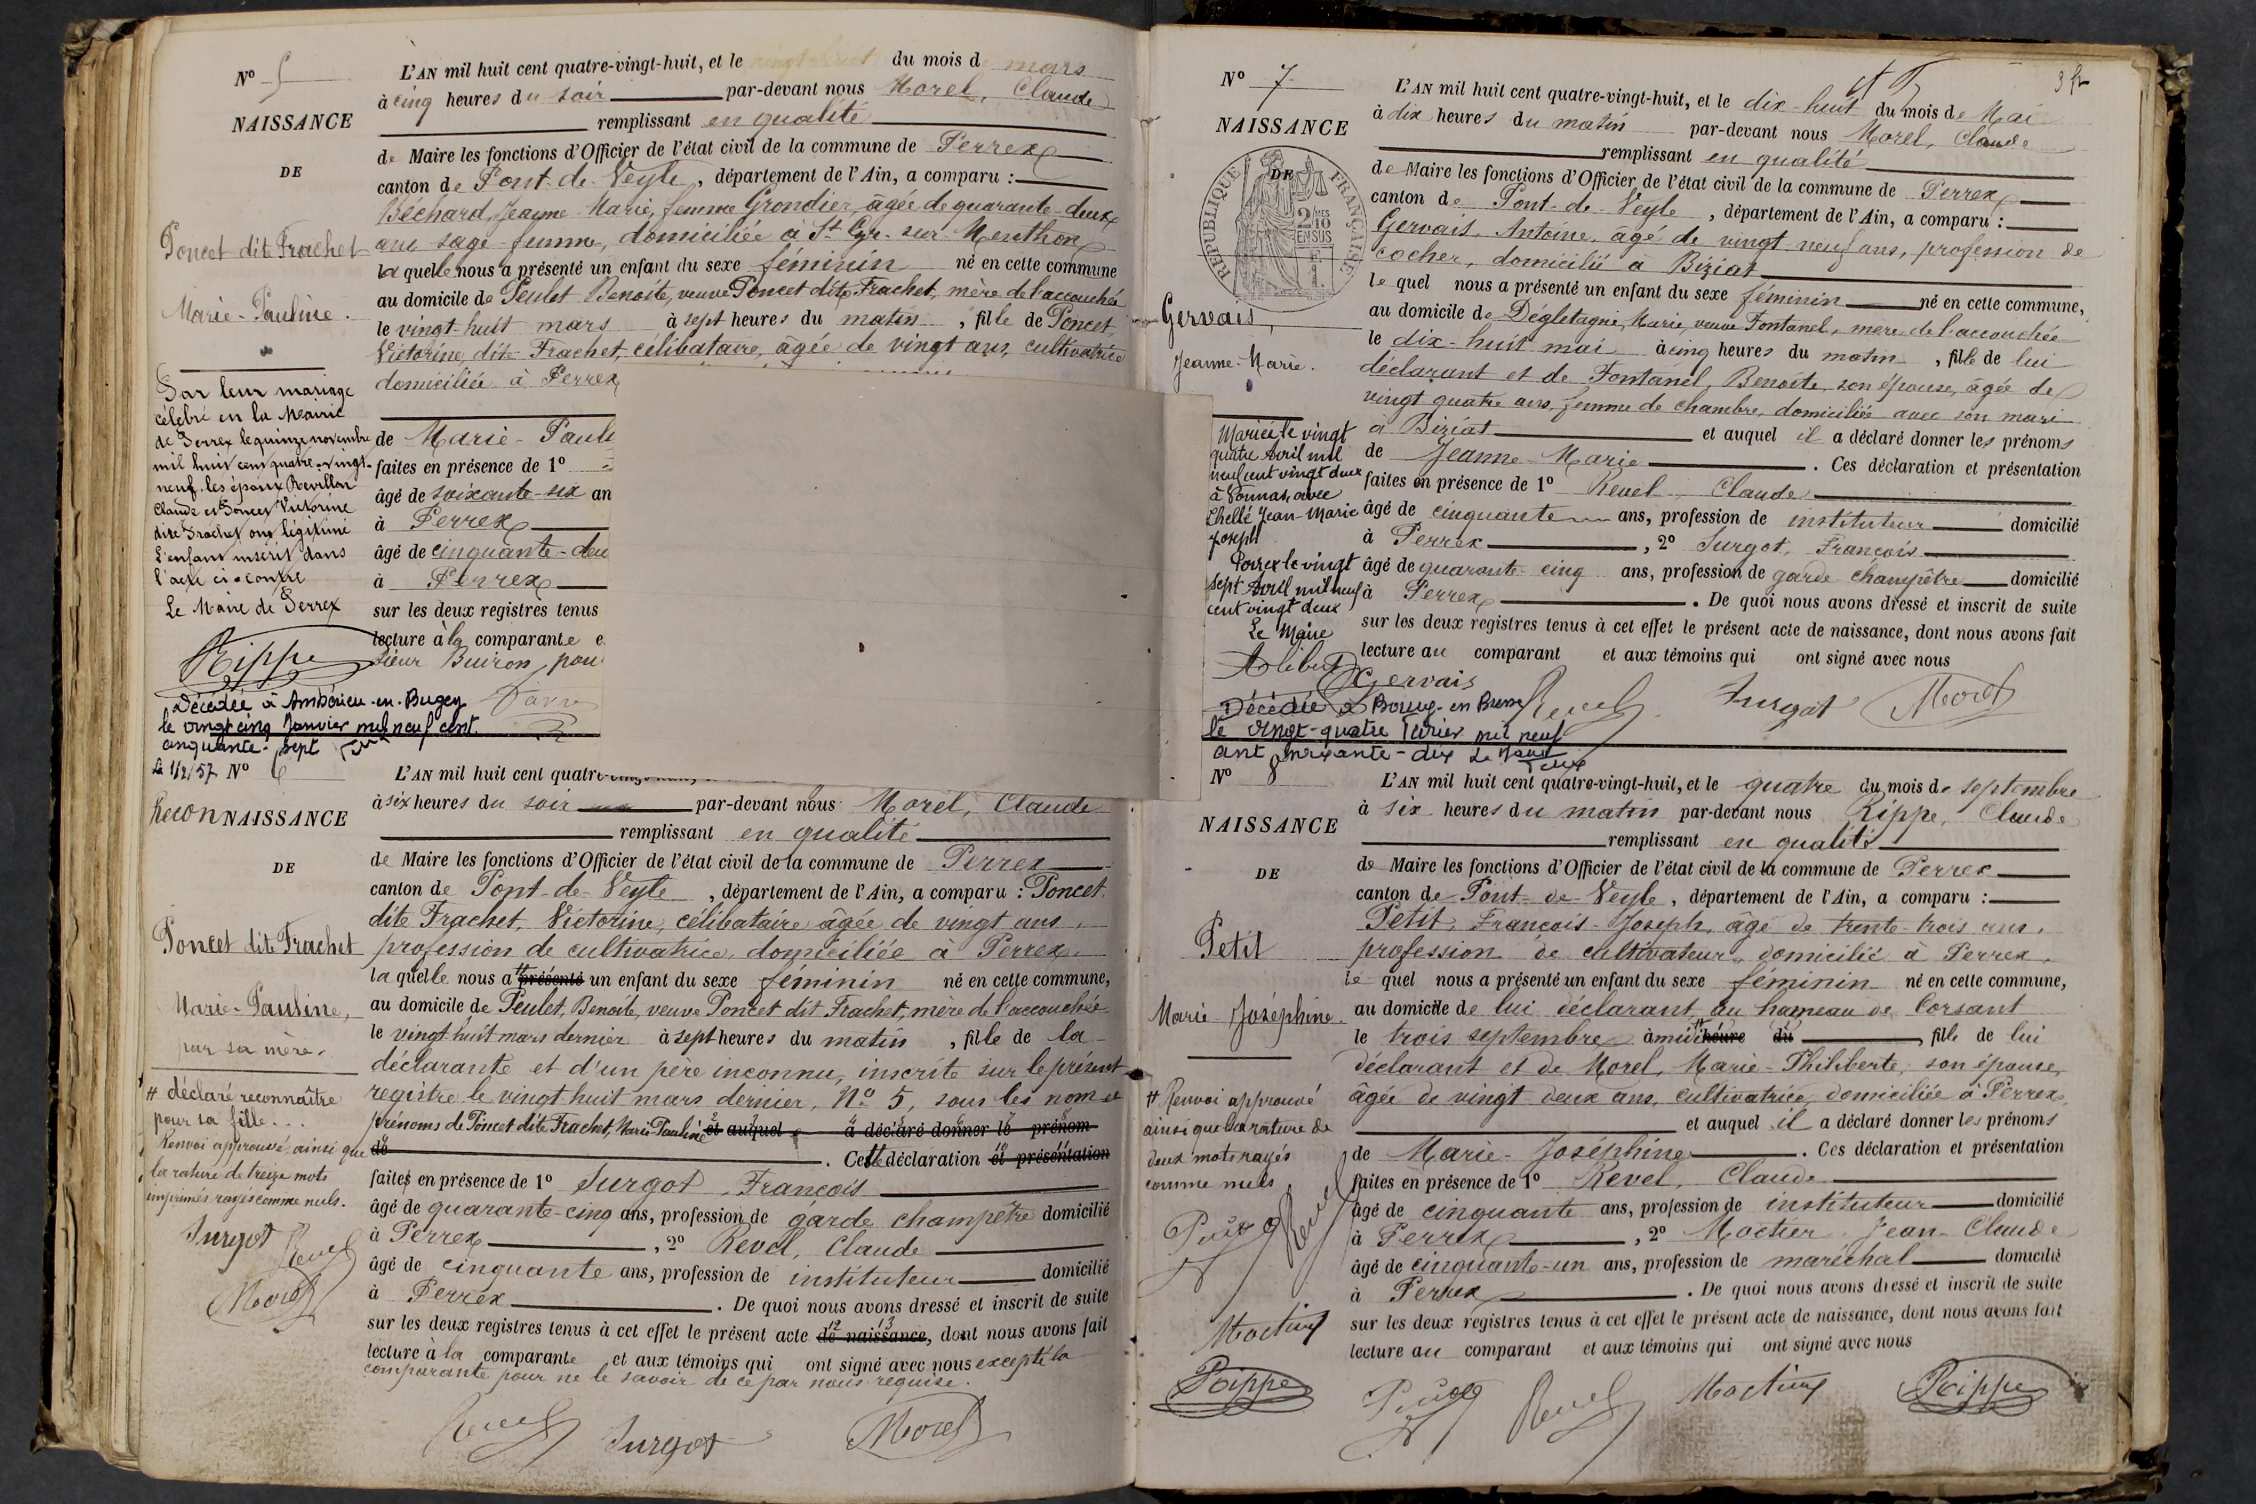 N° 5
NAISSANCE
DE
Poncet dit Frachet
Marie-Pauline.
L'AN mil huit cent quatre-vingt-huit, et le vingt-huit du mois de mars
à cinq heures du soir par-devant nous Morel, Claude
remplissant en qualité
de Maire les fonctions d'Officier de l'état civil de la commune de Perrex
canton de Pont-de-Veyle, département de l'Ain, a comparu :
Béchard, Jeanne-Marie, femme Grondier, âgée de quarante-deux
ans sage-femme, domiciliée à St Cyr-sur-Menthon
la quelle nous a présenté un enfant du sexe féminin né en cette commune
au domicile de Peulet Benoite, veuve Poncet dit Frachet, mère de l'accouchée
le vingt-huit mars à sept heures du matin, fille de Poncet
Victorine, dite Frachet, célibataire, âgée de vingt ans, cultivatrice
domiciliée à Perrex
de Marie-Paul
faites en présence de 1°
âgé de soixante-six an
à Perrex
âgé de cinquante-deu
à Perrex
sur les deux registres tenus
lecture à la comparante e
sieur Buiron, pou
Par leur mariage
célébré en la Mairie
de Perrex le quinze novembre
mil huit cent quatre-vingt-
neuf, les époux Revillon
Claude et Poncet Victorine
dite Frachet ont légitimé
l'enfant inscrit dans
l'acte ci-contre
Le Maire de Perrex
Rippe
Décédée à Ambérieu-en-Bugey
le vingt cinq Janvier mil neuf cent
cinquante-sept
Le 1/2/57
N° 6
ReconNAISSANCE
DE
Poncet dit Frachet
Marie-Pauline,
par sa mère.
L'AN mil huit cent quatre-vingt
à six heures du soir par-devant nous Morel, Claude
remplissant en qualité
de Maire les fonctions d'Officier de l'état civil de la commune de Perrex
canton de Pont-de-Veyle, département de l'Ain, a comparu : Poncet
dite Frachet, Victorine, célibataire âgée de vingt ans,
profession de cultivatrice, domiciliée à Perrex,
la quelle nous a # présenté un enfant du sexe féminin né en cette commune,
au domicile de Peulet, Benoite, veuve Poncet dit Frachet, mère de l'accouchée
le vingt huit mars dernier à sept heures du matin, fille de la
déclarante et d'un père inconnu, inscrite sur le présent
registre le vingt huit mars dernier, N° 5, sous les nom et
prénoms de Poncet dite Frachet, Marie-Pauline et auquel a déclaré donner le prénom
de . Cette déclaration et présentation
faites en présence de 1° Surgot, François
âgé de quarante-cinq ans, profession de garde champêtre domicilié
à Perrex, 2° Revel, Claude
âgé de cinquante ans, profession de instituteur domicilié
à Perrex. De quoi nous avons dressé et inscrit de suite
sur les deux registres tenus à cet effet le présent acte de naissance, dont nous avons fait
lecture à la comparante et aux témoins qui ont signé avec nous excepté la
comparante pour ne le savoir de ce par nous requise.
Revel Surgot Morel
# déclaré reconnaître
pour sa fille...
Renvoi approuvé ainsi que
la rature de treize mots
imprimés rayés comme nuls.
Surgot
Revel
Morel
3 f
N° 7
NAISSANCE
DE
RÉPUBLIQUE FRANÇAISE
2/10 EN SUS
Gervais,
Jeanne-Marie.
L'AN mil huit cent quatre-vingt-huit, et le dix-huit du mois de Mai
à dix heures du matin par-devant nous Morel, Claude
remplissant en qualité
de Maire les fonctions d'Officier de l'état civil de la commune de Perrex
canton de Pont-de-Veyle, département de l'Ain, a comparu :
Gervais, Antoine, âgé de vingt-neuf ans, profession de
cocher, domicilié à Biziat
le quel nous a présenté un enfant du sexe féminin né en cette commune,
au domicile de Dégletagne, Marie, veuve Fontanel, mère de l'accouchée
le dix-huit mai à cinq heures du matin, fille de lui
déclarant et de Fontanel, Benoite, son épouse, âgée de
vingt quatre ans, femme de chambre, domiciliée avec son mari
à Biziat et auquel il a déclaré donner les prénoms
de Jeanne-Marie. Ces déclaration et présentation
faites en présence de 1° Revel, Claude
âgé de cinquante ans, profession de instituteur domicilié
à Perrex, 2° Surgot, François
âgé de quarante-cinq ans, profession de garde champêtre domicilié
à Perrex. De quoi nous avons dressé et inscrit de suite
sur les deux registres tenus à cet effet le présent acte de naissance, dont nous avons fait
lecture au comparant et aux témoins qui ont signé avec nous
Gervais Revel Surgot Morel
Mariée le vingt
quatre avril mil
neuf cent vingt deux
à Vonnas avec
Chellé Jean-Marie
Joseph
Perrex le vingt
sept avril mil neuf
cent vingt deux
Le Maire
Décédée à Bourg-en-Bresse
le vingt-quatre Février mil neuf
cent soixante-dix Le Maire
N° 8
NAISSANCE
DE
Petit
Marie Joséphine.
L'AN mil huit cent quatre-vingt-huit, et le quatre du mois de septembre
à six heures du matin par-devant nous Rippe, Claude
remplissant en qualité
de Maire les fonctions d'Officier de l'état civil de la commune de Perrex
canton de Pont-de-Veyle, département de l'Ain, a comparu :
Petit, François-Joseph, âgé de trente-trois ans,
profession de cultivateur, domicilié à Perrex,
le quel nous a présenté un enfant du sexe féminin né en cette commune,
au domicile de lui déclarant, au hameau de Corsant
le trois septembre à midi # heure du, fille de lui
déclarant et de Morel, Marie-Philiberte, son épouse,
âgée de vingt-deux ans, cultivatrice, domiciliée à Perrex
et auquel il a déclaré donner les prénoms
de Marie-Joséphine. Ces déclaration et présentation
faites en présence de 1° Revel, Claude
âgé de cinquante ans, profession de instituteur domicilié
à Perrex, 2° Moctier Jean-Claude
âgé de cinquante-un ans, profession de maréchal domicilié
à Perrex. De quoi nous avons dressé et inscrit de suite
sur les deux registres tenus à cet effet le présent acte de naissance, dont nous avons fait
lecture au comparant et aux témoins qui ont signé avec nous
# Renvoi approuvé
ainsi que la rature de
deux mots rayés
comme nuls
Revel
Moctier
Rippe
Revel Moctier Rippe